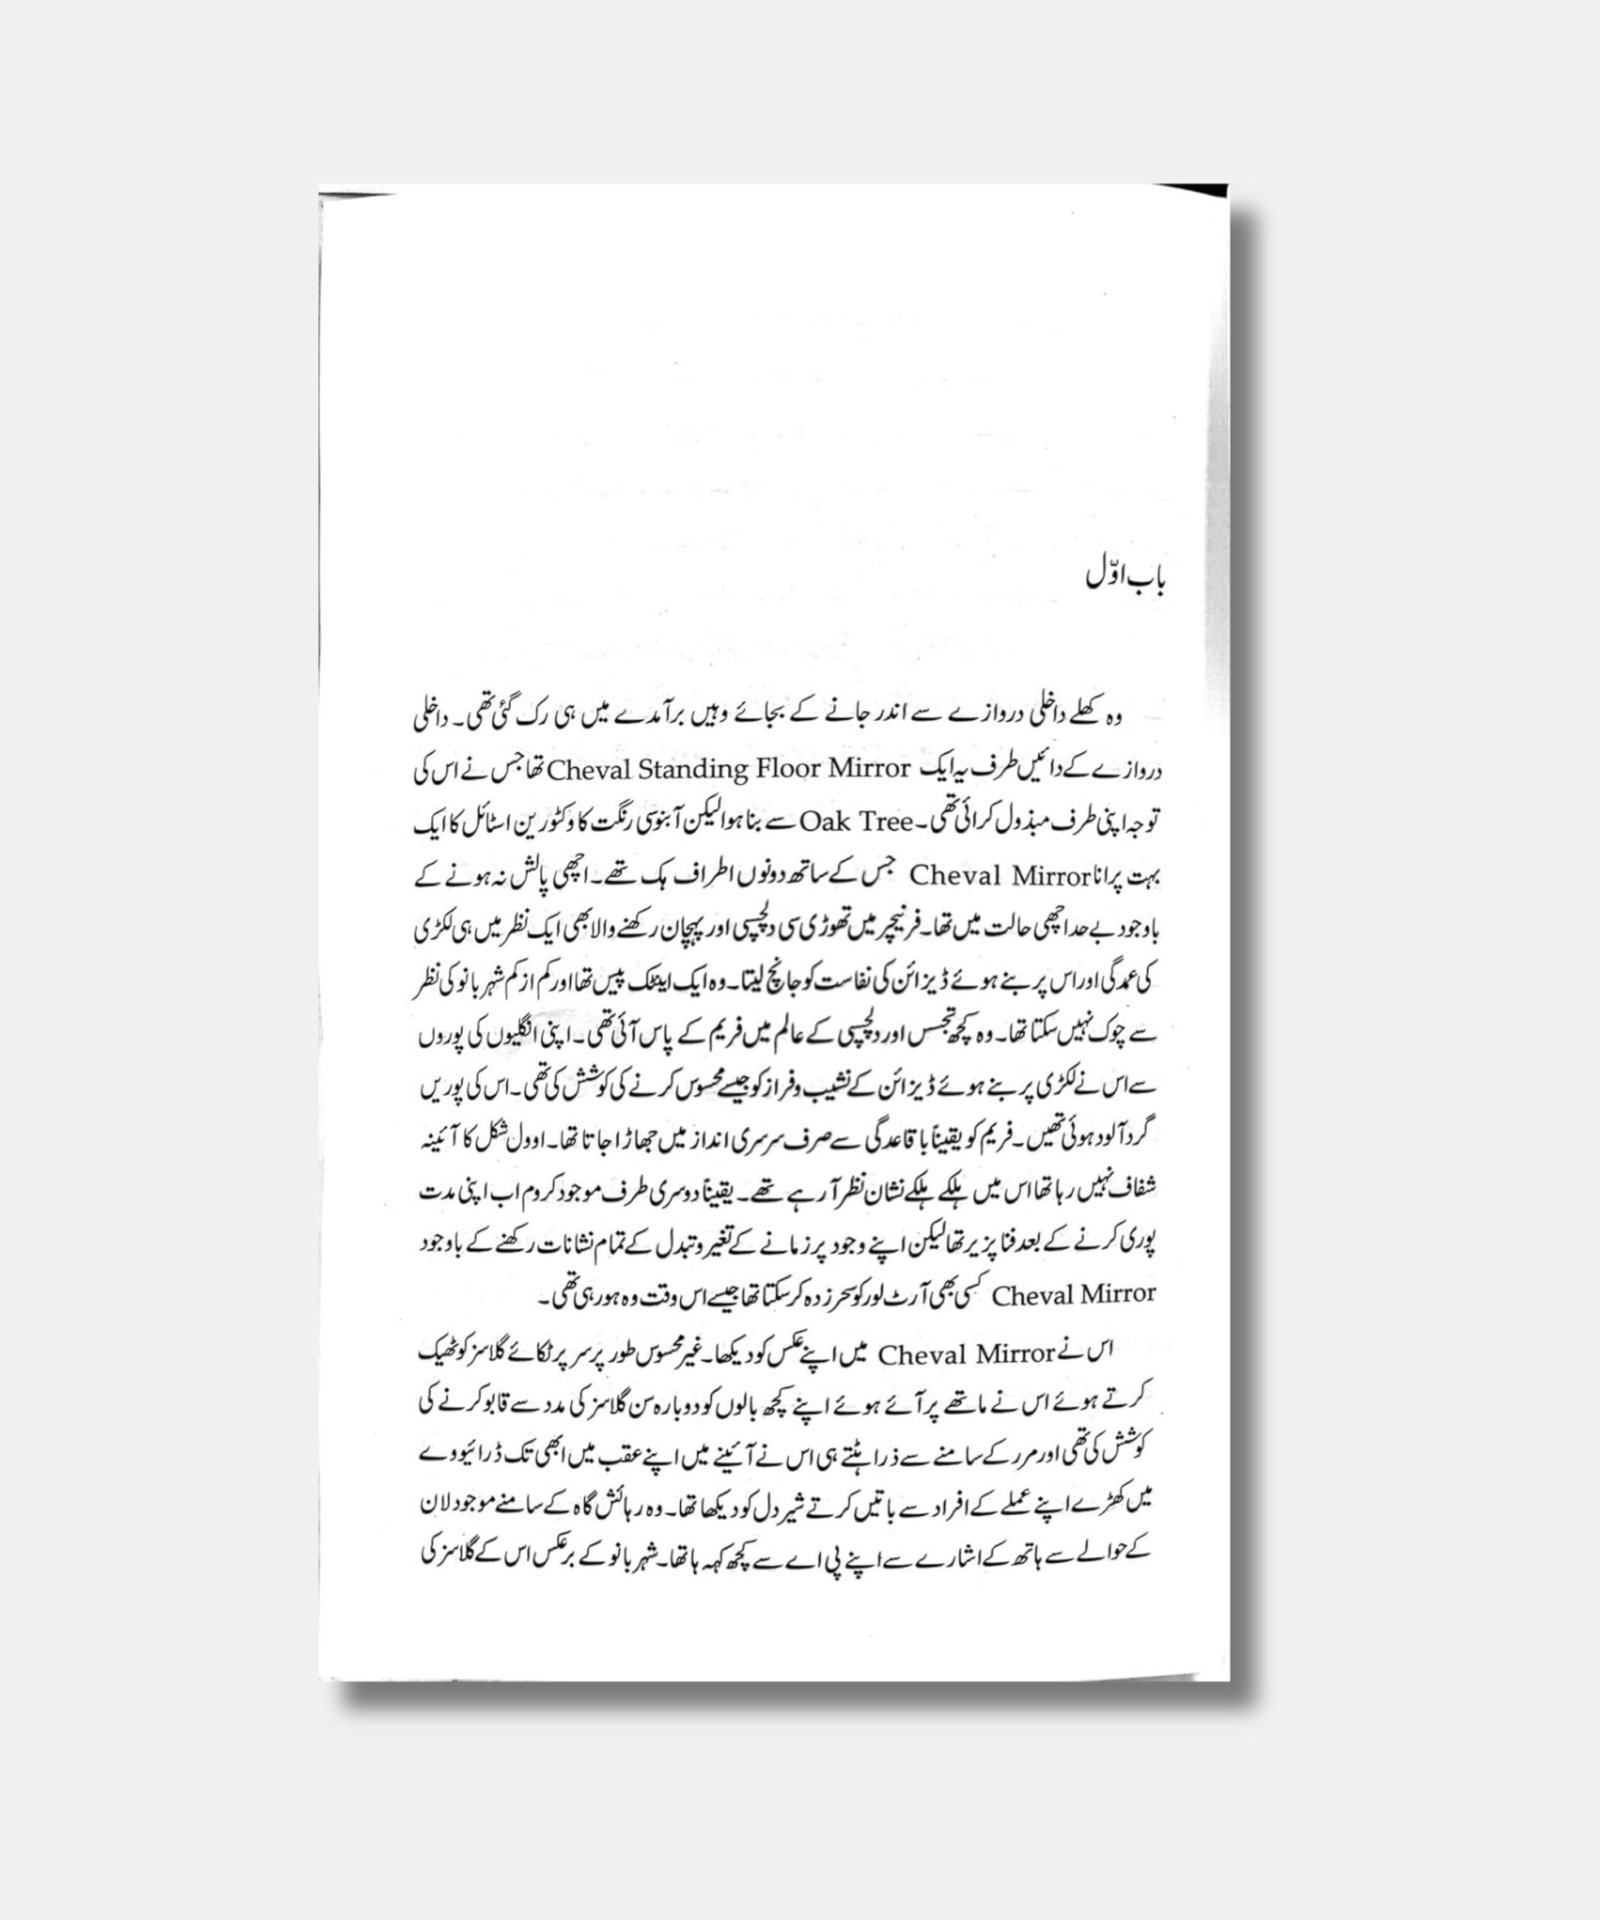 باب اوّل
وہ کھلے داخلی دروازے سے اندر جانے کے بجائے وہیں برآمدے میں ہی رک گئی تھی۔ داخلی
دروازے کے دائیں طرف یہ ایک Cheval Standing Floor Mirror تھا جس نے اس کی
توجہ اپنی طرف مبذول کرائی تھی۔ Oak Tree سے بنا ہوا لیکن آبنوسی رنگت کا وکٹورین اسٹائل کا ایک
بہت پرانا Cheval Mirror جس کے ساتھ دونوں اطراف ہک تھے۔ اچھی پالش نہ ہونے کے
باوجود بے حد اچھی حالت میں تھا۔ فرنیچر میں تھوڑی سی دلچسپی اور پہچان رکھنے والا بھی ایک نظر میں ہی لکڑی
کی عمدگی اور اس پر بنے ہوئے ڈیزائن کی نفاست کو جانچ لیتا۔ وہ ایک اینٹک پیس تھا اور کم از کم شہر بانو کی نظر
سے چوک نہیں سکتا تھا۔ وہ کچھ تجسس اور دلچسپی کے عالم میں فریم کے پاس آئی تھی۔ اپنی انگلیوں کی پوروں
سے اس نے لکڑی پر بنے ہوئے ڈیزائن کے نشیب و فراز کو جیسے محسوس کرنے کی کوشش کی تھی۔ اس کی پوریں
گرد آلود ہوئی تھیں۔ فریم کو یقیناً باقاعدگی سے صرف سرسری انداز میں جھاڑا جاتا تھا۔ اوول شکل کا آئینہ
شفاف نہیں رہا تھا اس میں ہلکے ہلکے نشان نظر آ رہے تھے۔ یقیناً دوسری طرف موجود کروم اب اپنی مدت
پوری کرنے کے بعد فنا پزیر تھا لیکن اپنے وجود پر زمانے کے تغیر و تبدل کے تمام نشانات رکھنے کے باوجود
Cheval Mirror کسی بھی آرٹ لور کو سحر زدہ کر سکتا تھا جیسے اس وقت وہ ہو رہی تھی۔
اس نے Cheval Mirror میں اپنے عکس کو دیکھا۔ غیر محسوس طور پر سر پر ٹکائے گلاسز کو ٹھیک
کرتے ہوئے اس نے ماتھے پر آئے ہوئے اپنے کچھ بالوں کو دوبارہ سن گلاسز کی مدد سے قابو کرنے کی
کوشش کی تھی اور مرر کے سامنے سے ذرا ہٹتے ہی اس نے آئینے میں اپنے عقب میں ابھی تک ڈرائیووے
میں کھڑے اپنے عملے کے افراد سے باتیں کرتے شیر دل کو دیکھا تھا۔ وہ رہائش گاہ کے سامنے موجود لان
کے حوالے سے ہاتھ کے اشارے سے اپنے پی اے سے کچھ کہہ ہا تھا۔ شہر بانو کے برعکس اس کے گلاسز کی